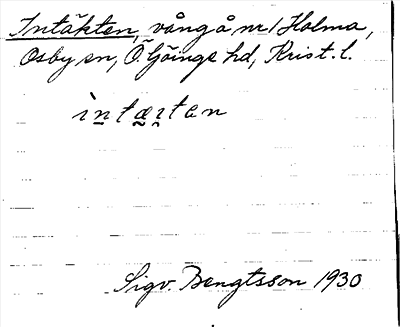 Intäkten, vång å nr 1 Holma,
Osby sn, Ö. Göinge hd, Krist. l.
ìntæıtan
Sigv. Bengtsson 1930